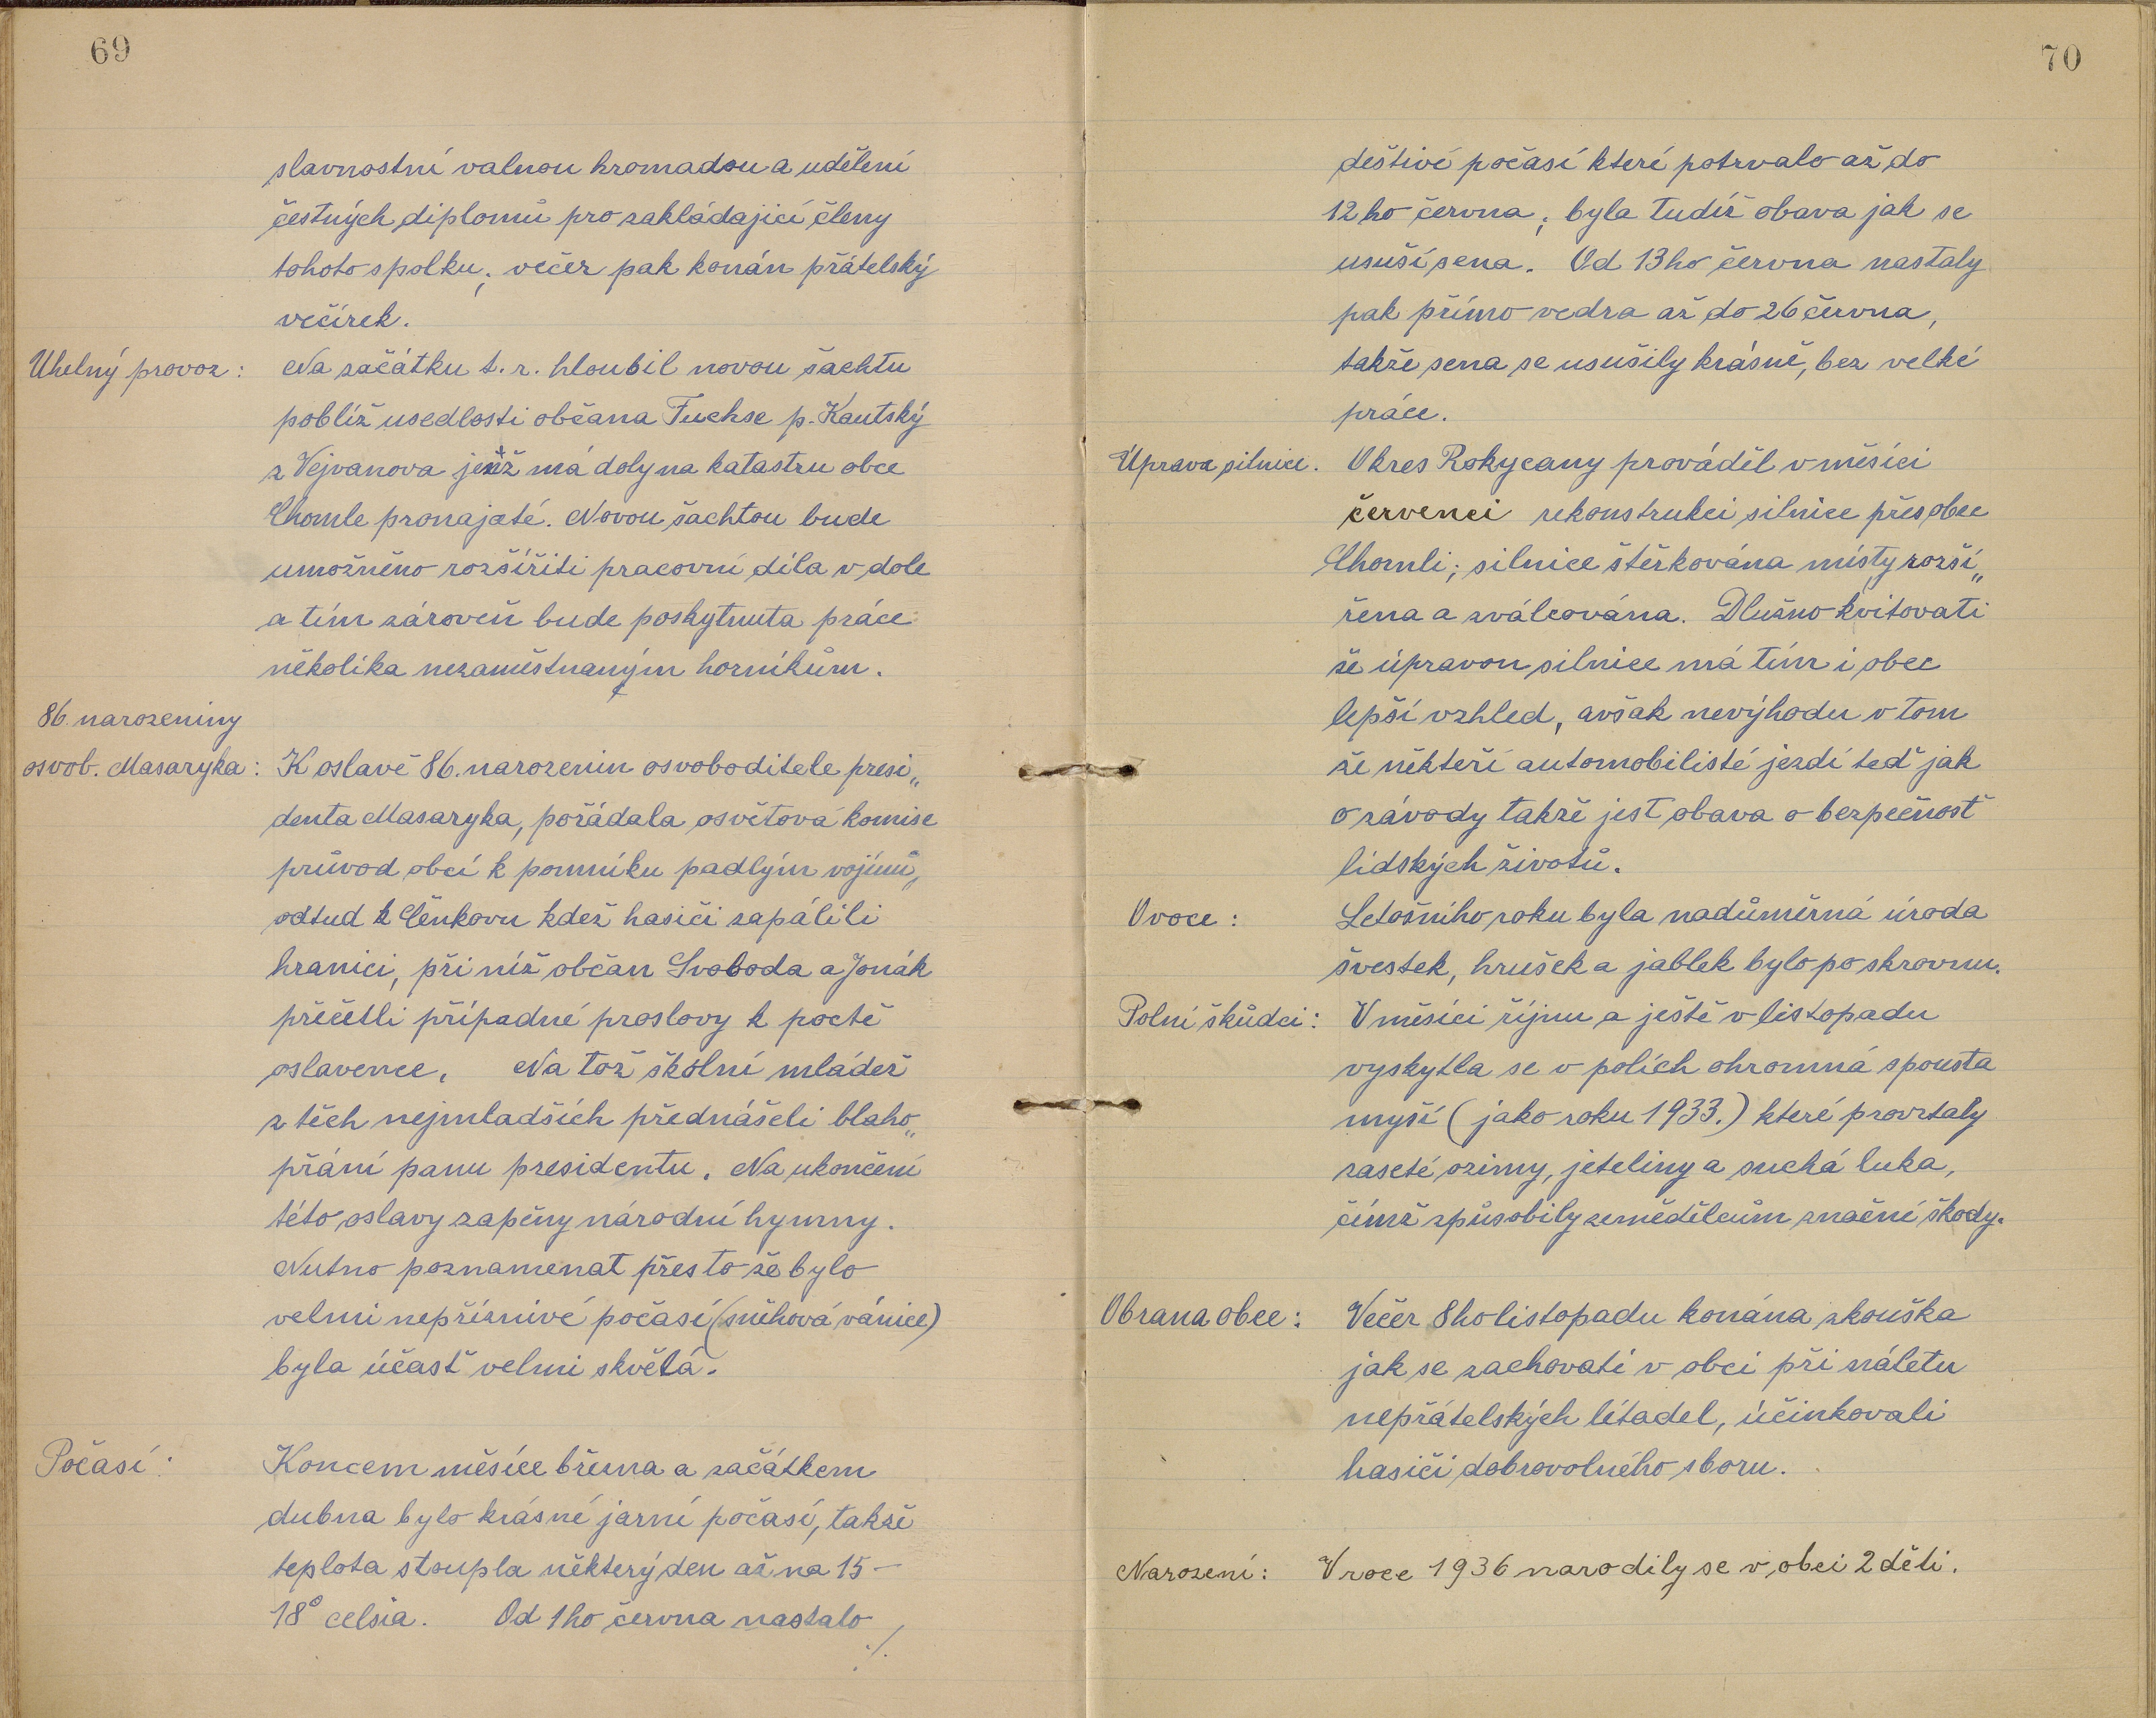 69
slavnostní valnou hromadou a udělení
čestných diplomů pro zakládající členy
tohoto spolku; večer pak konán přátelský
večírek.
Uhelný provoz:
Na začátku t. r. hloubil novou šachtu
poblíž usedlosti občana Fuchse p. Kautský
z Vejvanova jenž má doly na katastru obce
Chomle pronajaté. Novou šachtou bude
umožněno rozšířiti pracovní díla v dole
a tím zároveň bude poskytnuta práce
několika nezaměstnaným horníkům.
86. narozeniny
osvob. Masaryka:
K oslavě 86. narozenin osvoboditele presi„
denta Masaryka, pořádala osvětová komise
průvod obcí k pomníku padlým vojínů,
odtud k Čenkovu kdež hasiči zapálili
hranici, při níž občan Svoboda a Jonák
přečetli případné proslovy k poctě
oslavence. Na tož školní mládež
z těch nejmladších přednášeli blaho„
přání panu presidentu. Na ukončení
této oslavy zapěny národní hymny.
Nutno poznamenat přes to že bylo
velmi nepříznivé počasí (sněhová vánice)
byla účasť velmi skvělá.
Počasí:
Koncem měsíce března a začátkem
dubna bylo krásné jarní počasí, takže
teplota stoupla některý den až na 15–
18° celsia. Od 1ho června nastalo
./.
70
deštivé počasí které potrvalo až do
12ho června; byla tudíž obava jak se
usuší sena. Od 13ho června nastaly
pak přímo vedra až do 26 června,
takže sena se usušily krásně, bez velké
práce.
Úprava silnice.
Okres Rokycany prováděl v měsíci
červenci rekonstrukci silnice přes obec
Chomli; silnice štěrkována místy rozší„
řena a zválcována. Dlužno kvitovati
že úpravou silnice má tím i obec
lepší vzhled, avšak nevýhodu v tom
že někteří automobilisté jezdí teď jak
o závody takže jest obava o bezpečnosť
lidských životů.
Ovoce:
Letošního roku byla nadůměrná úroda
švestek, hrušek a jablek bylo po skrovnu.
Polní škůdci:
V měsíci říjnu a ještě v listopadu
vyskytla se v polích ohromná spousta
myší (jako roku 1933.) které provrtaly
zaseté ozimy, jeteliny a suchá luka,
čímž způsobily zemědělcům značné škody.
Obrana obce:
Večer 8ho listopadu konána zkouška
jak se zachovati v obci při náletu
nepřátelských létadel, účinkovali
hasiči dobrovolného sboru.
Narození:
V roce 1936 narodily se v obci 2 děti.